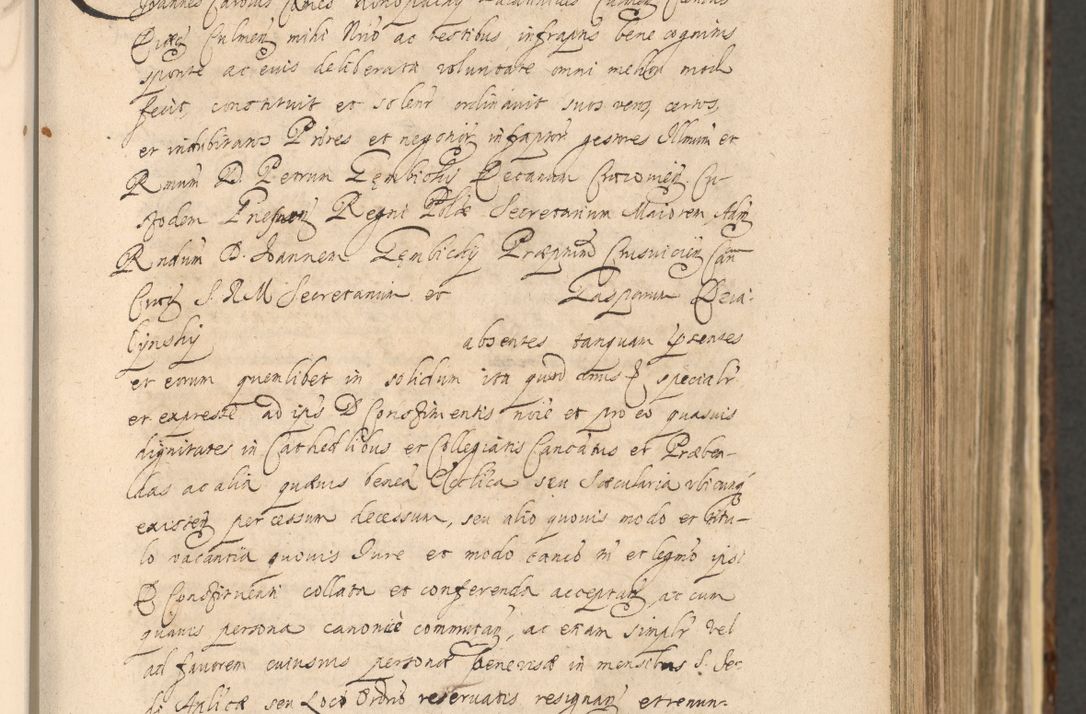 Joannes Carolus
Culmen mihi Nrio ac testibus infraptis bene cognitus
sponte ac eius deliberata voluntate omni meliori modo
fecit, constituit et solenr ordinavit suos veros, certos,
et indubitatos Prôres et negotiorum infrapter gestores Illmum et
Rmum D. Petrum Gębickij Decanum Cracovien. Cu-
stodem Regni Poloe Secretarium Maiorem Adm
Rndum D. Joannem Gębicky Præptum Crusvicien Can
Crac S. R. M Secretarium et Gasparum Dzia-
lynsky absentes tanquam pṡentes
et eorum quemlibet in solidum ita quod specialr
et expresse ad ipius D Constituentis noie et pro eo quasuis
dignitates in Cathedlibus et Collegiatis Canoatus et Præben-
das ac alia quævis benea Ecclica seu Sæcularia vbicunq
existen per cessum decessum, seu alio quouis modo et titu-
lo vacantia quouis Jure et modo canco et legmo ipsi
D Constituenti collata et conferenda acceptan, ac cum
quauis persona canonicè commutan, ac etiam simplr vel
ad favorem cuiusuis personæ benevisæ in mensibus S. Se-
di Aplicæ seu Loco Ordrio reservatis resignan et renun-